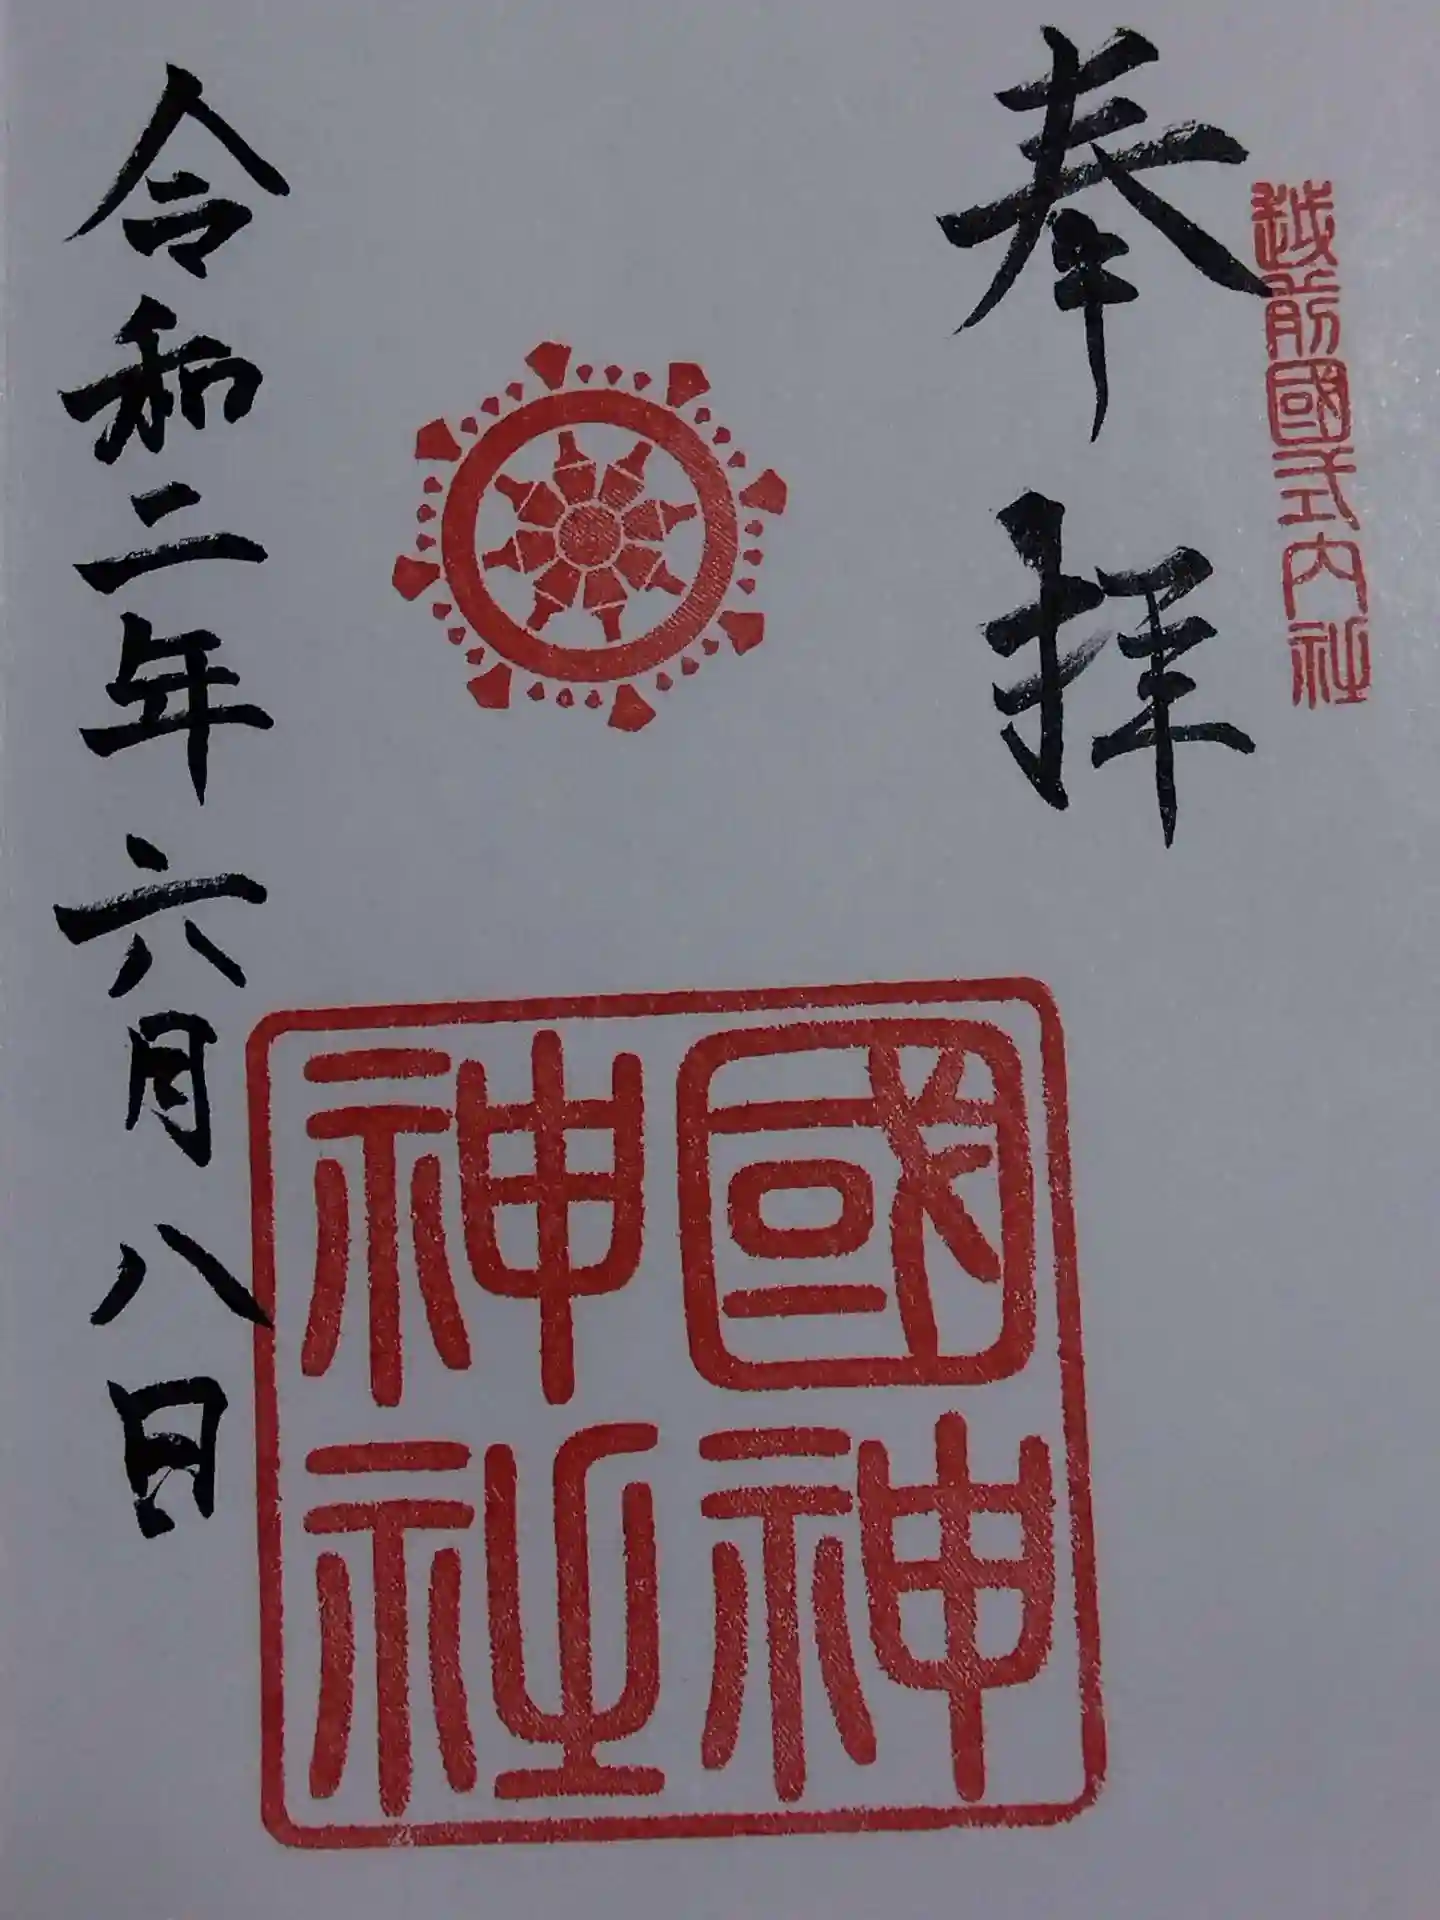 越前國式内社
奉拝
國神
神社
令和二年六月八日